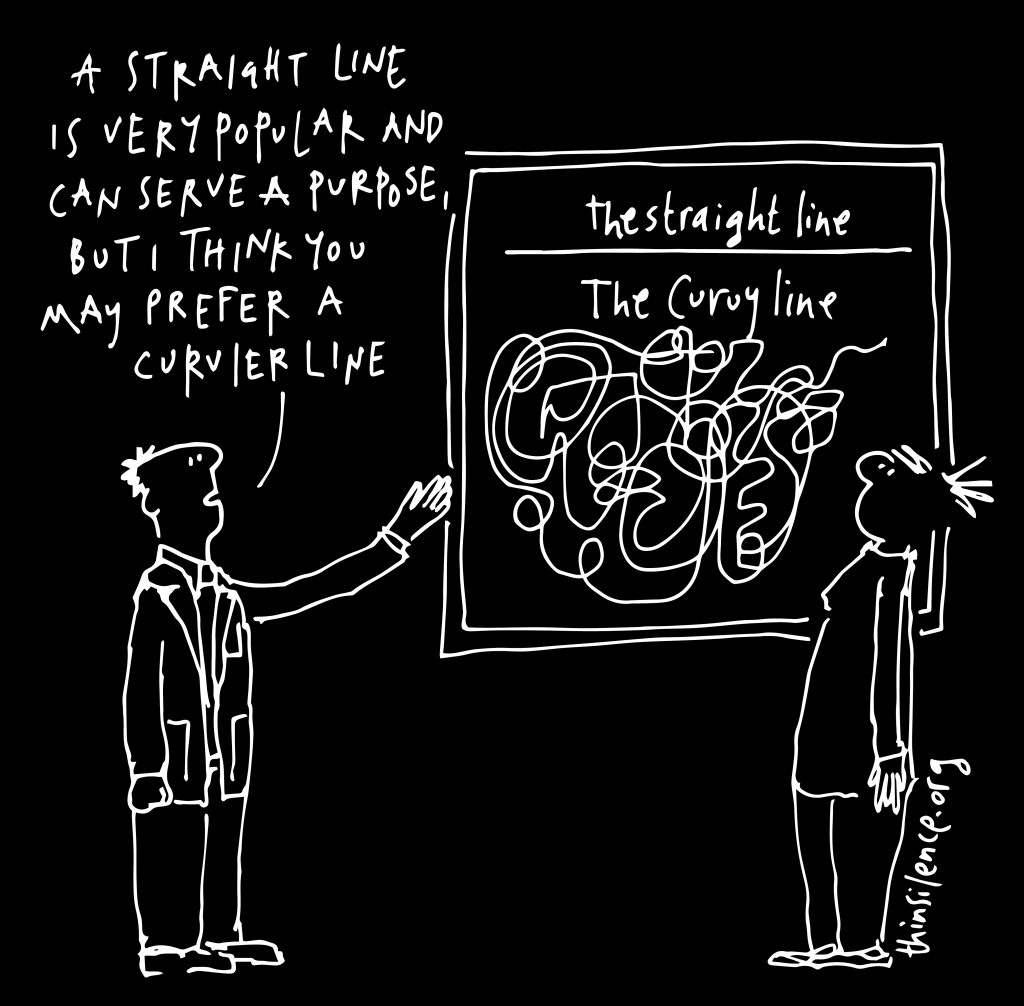 A STRAIGHT LINE
IS VERY POPULAR AND
CAN SERVE A PURPOSE,
BUT I THINK YOU
MAY PREFER A
CURVIER LINE
the straight line
The Curvy line
thinsilence.org